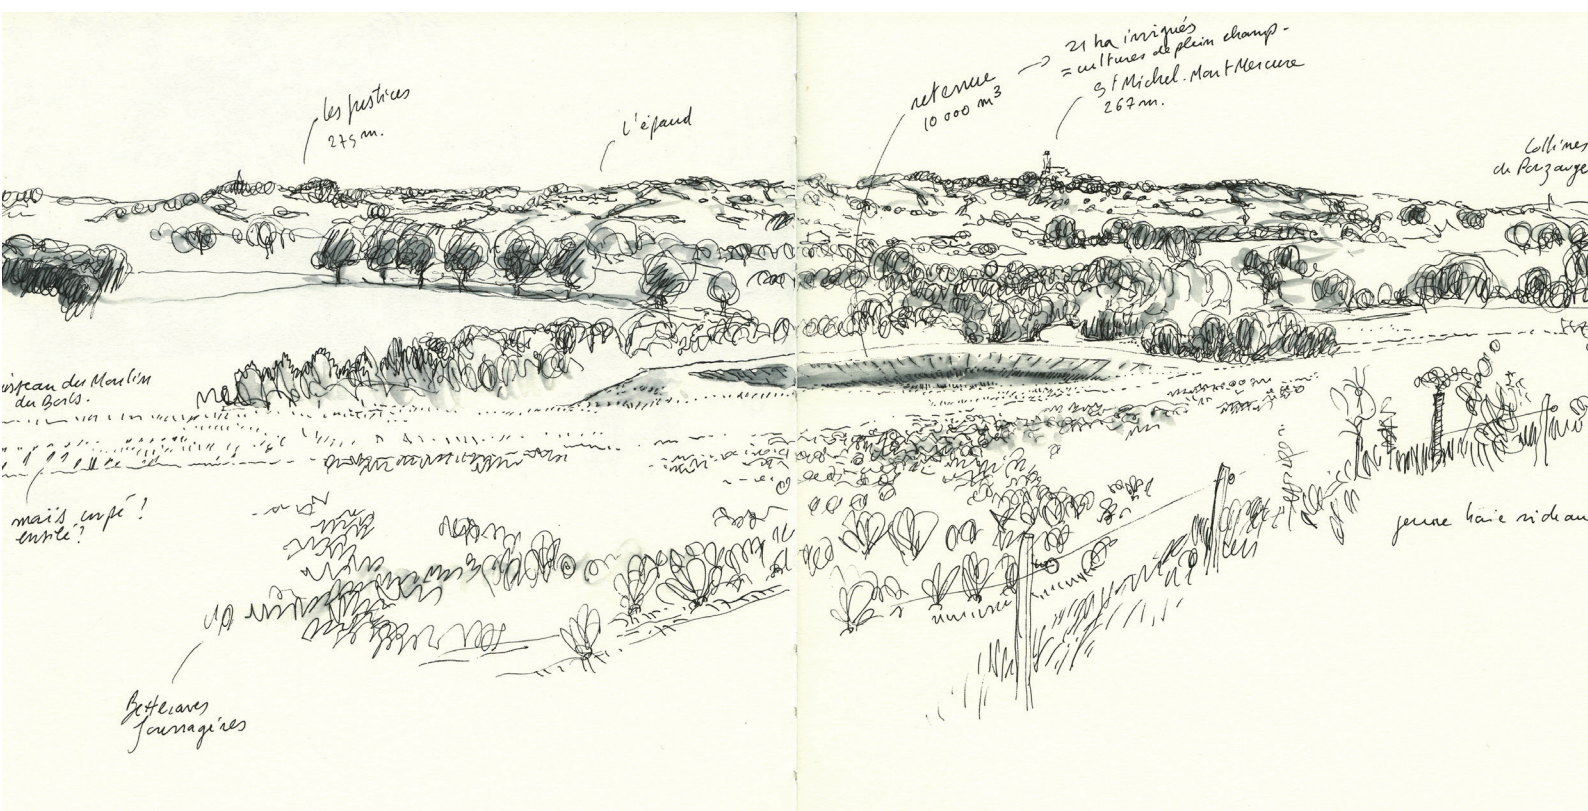 les justices
275 m.
l'épaud
retenue
10 000 m³
21 ha irrigués
= cultures de plein champ -
St Michel. Mont Mercure
267 m.
Collines
de Pouzauge
isseau du Moulin
du Bois.
maïs coupé !
ensilé ?
jeune haie rideau
Betteraves
fourragères